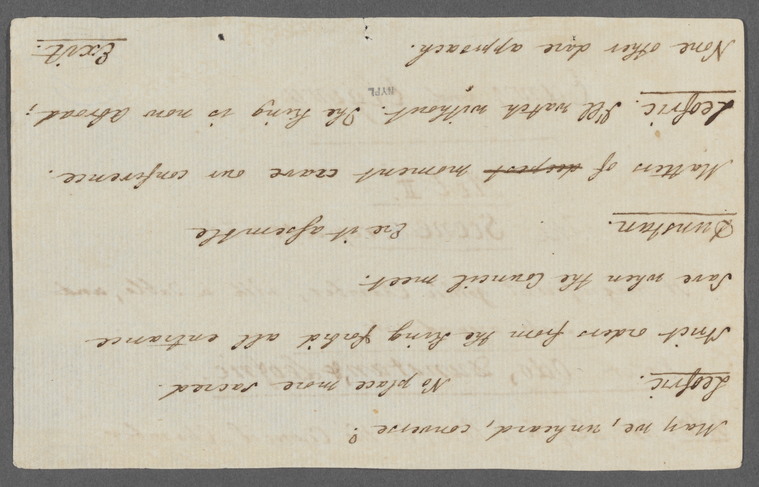 May we, unheard, converse?
Leofric. No place more sacred.
Strict orders from the King forbid all entrance
Save when the Council meet.
Dunstan. Ere it assemble
Matters of deepest moment crave our conference.
Leofric. I'll watch without. The King is now abroad;
None other dare approach. Exit.
NYPL
Act II.
Scene
Odo, Dunstan,